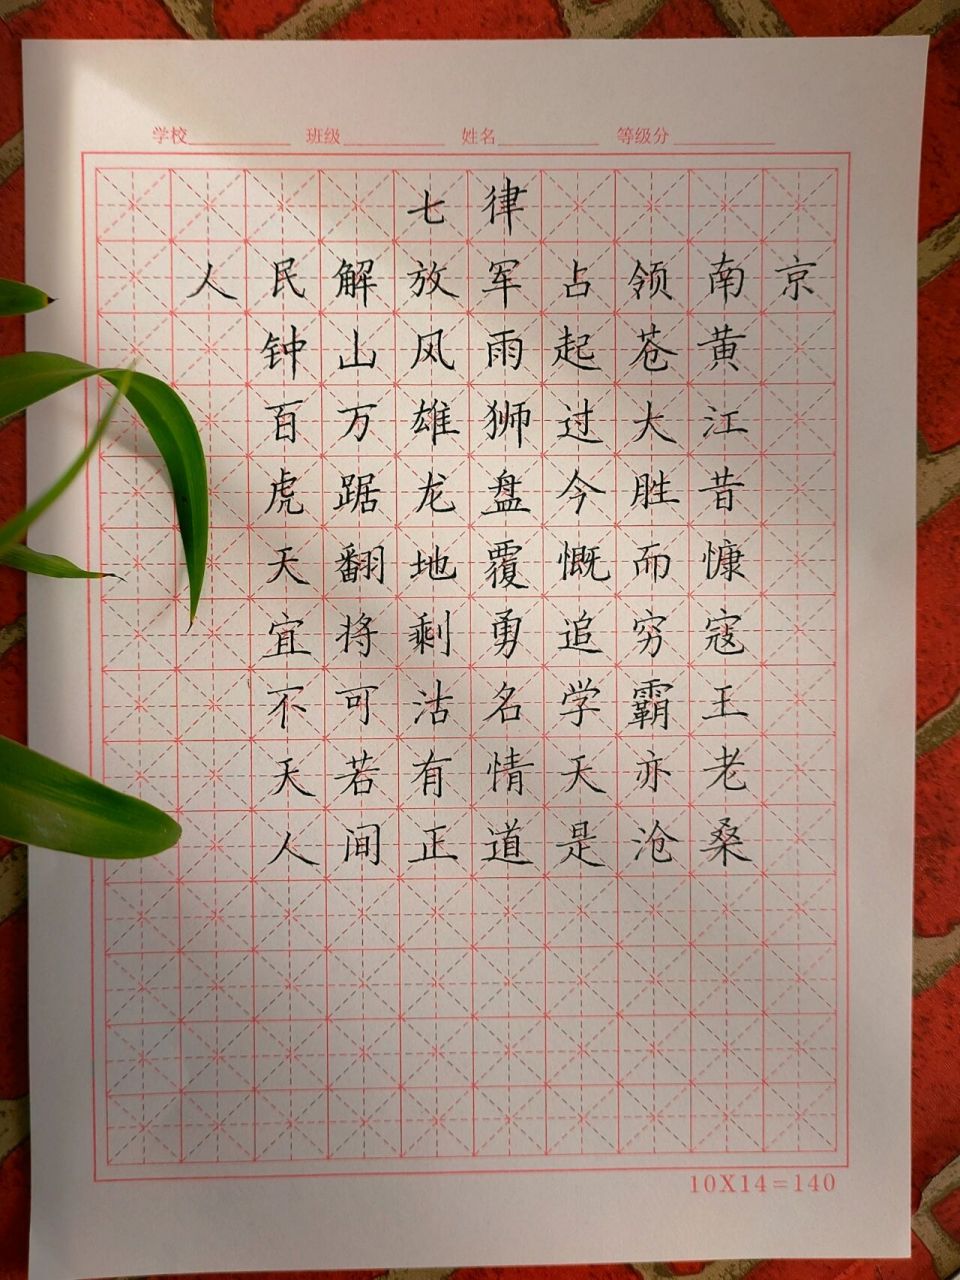 学校 班级 姓名 等级分
七律
人民解放军占领南京
钟山风雨起苍黄
百万雄狮过大江
虎踞龙盘今胜昔
天翻地覆慨而慷
宜将剩勇追穷寇
不可沽名学霸王
天若有情天亦老
人间正道是沧桑
10X14=140